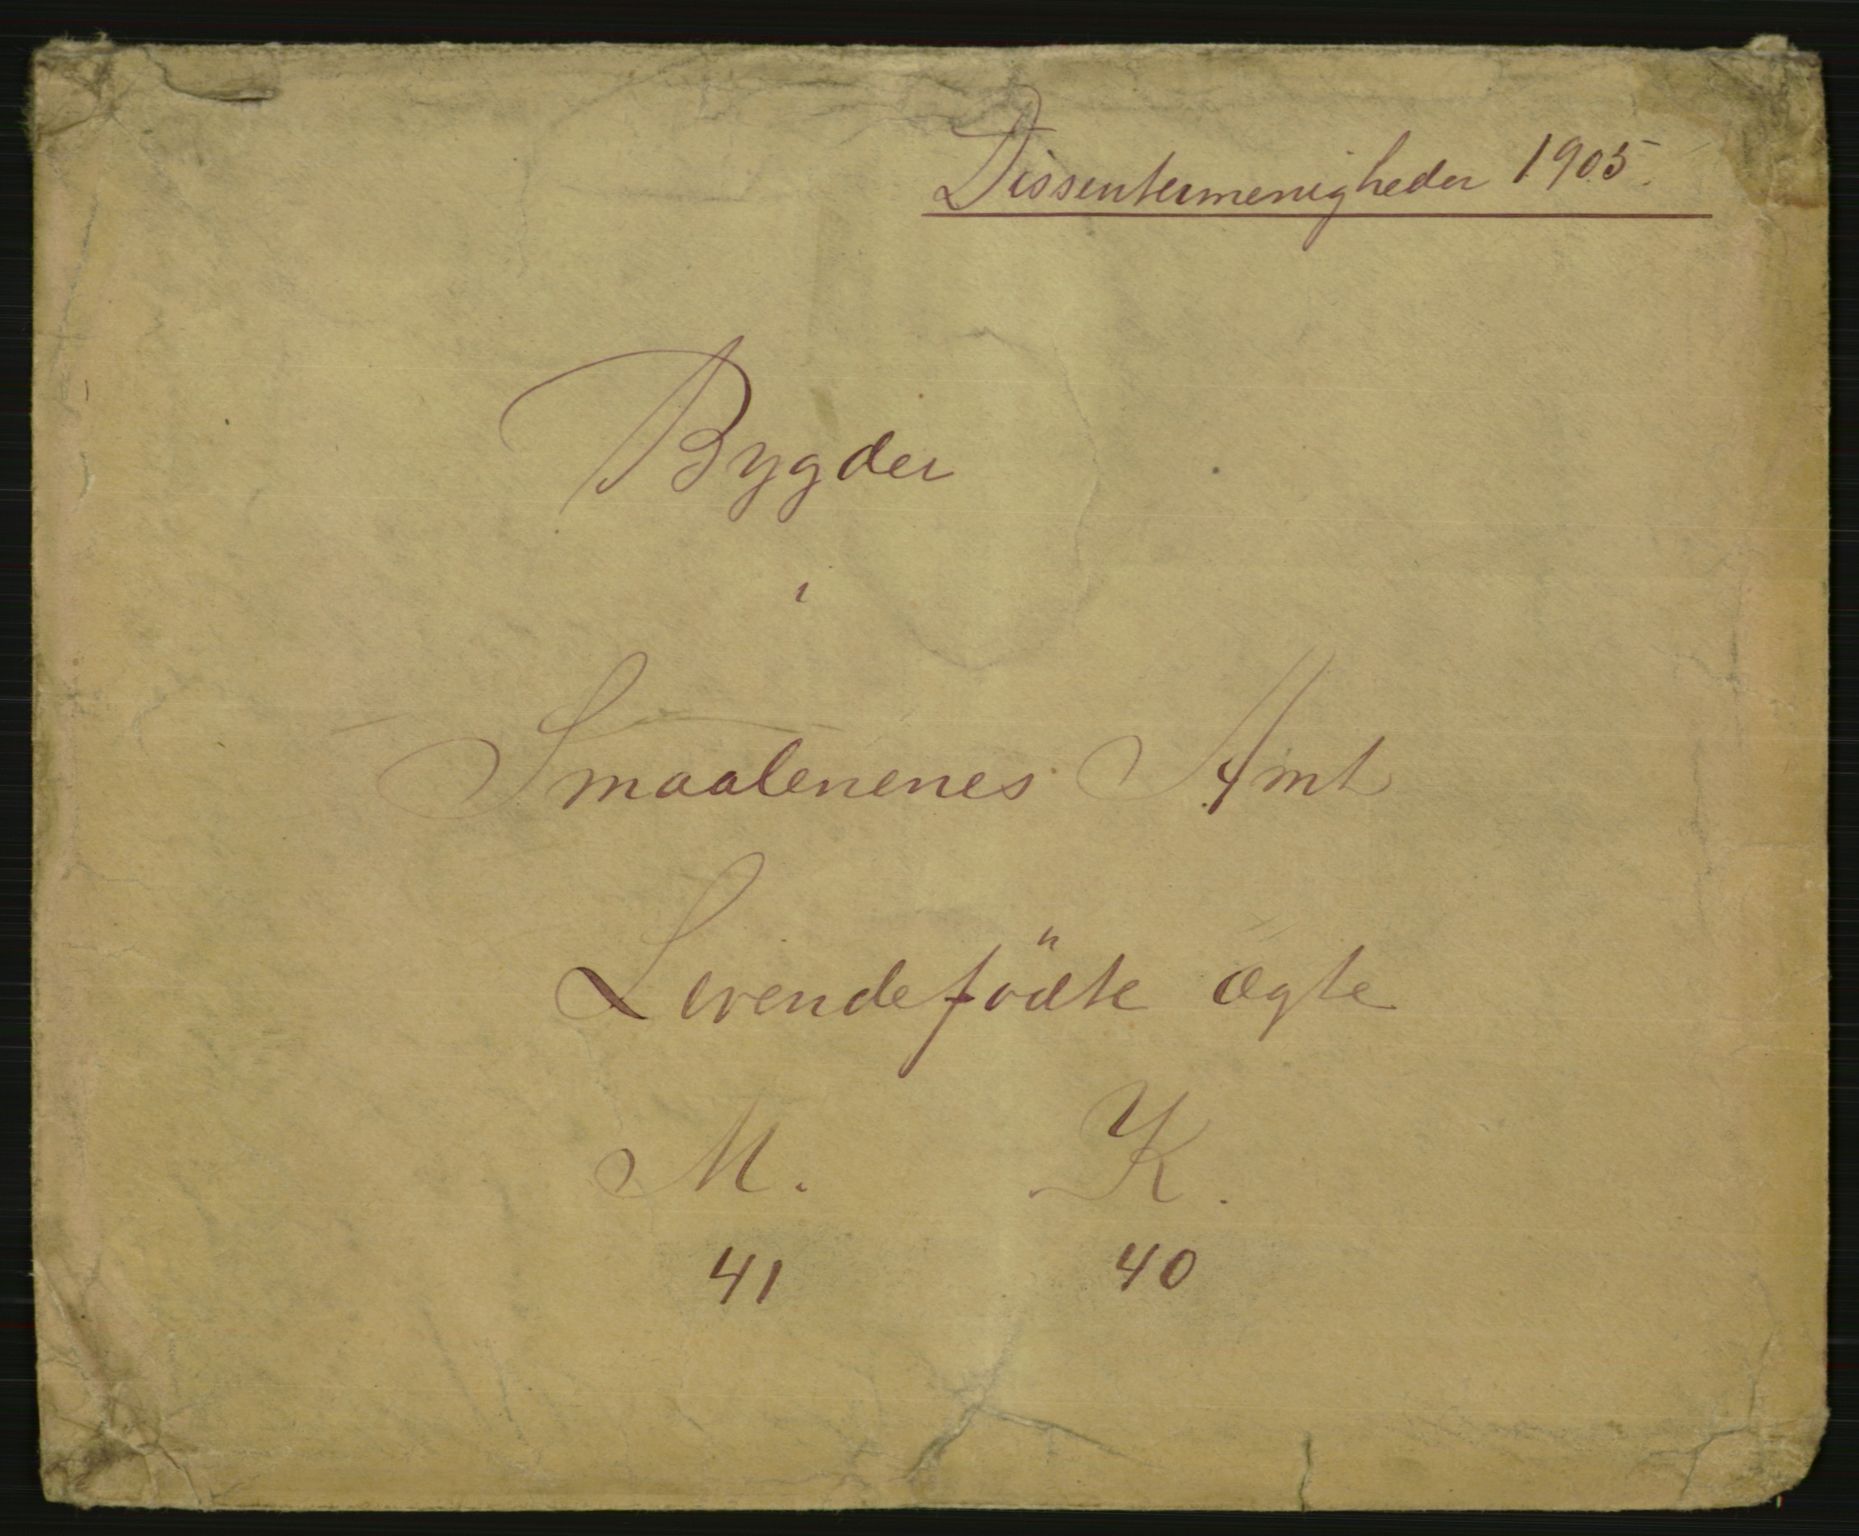 Dissentermenigheder 1905.
Bygder
i
Smaalenenes Amt
Levendefödte ægte
M. K.
41 40